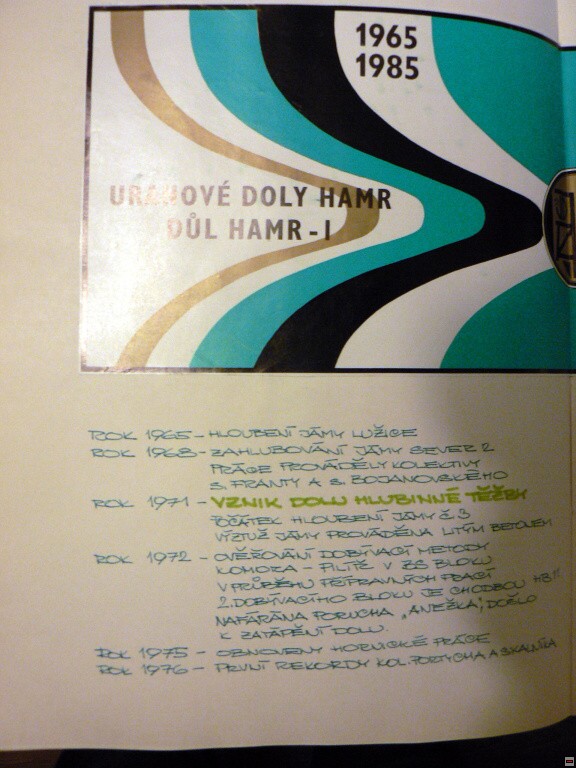 1965
1985
URANOVÉ DOLY HAMR
DŮL HAMR - I
ROK 1965 - HLOUBENÍ JÁMY LUŽICE
ROK 1968 - ZAHLUBOVÁNÍ JÁMY SEVER 2
PRÁCE PROVÁDĚLY KOLEKTIVY
S. FRANTY A S. BOJANOVSKÉHO
ROK 1971 - VZNIK DOLU HLUBINNÉ TĚŽBY
POČÁTEK HLOUBENÍ JÁMY Č. 3
VÝZTUŽ JÁMY PROVÁDĚNA LITÝM BETONEM
ROK 1972 - OVĚŘOVÁNÍ DOBÝVACÍ METODY
KOMORA - PILÍŘ V BLOKU
V PRŮBĚHU PŘÍPRAVNÝCH PRACÍ
2. DOBÝVACÍHO BLOKU JE CHODBOU
NAFÁRÁNA PORUCHA "ANEŽKA", DOŠLO
K ZATÁPĚNÍ DOLU.
ROK 1975 - OBNOVENY HORNICKÉ PRÁCE
ROK 1976 - PRVNÍ REKORDY KOL. PORTYCHA A SKALNÍKA